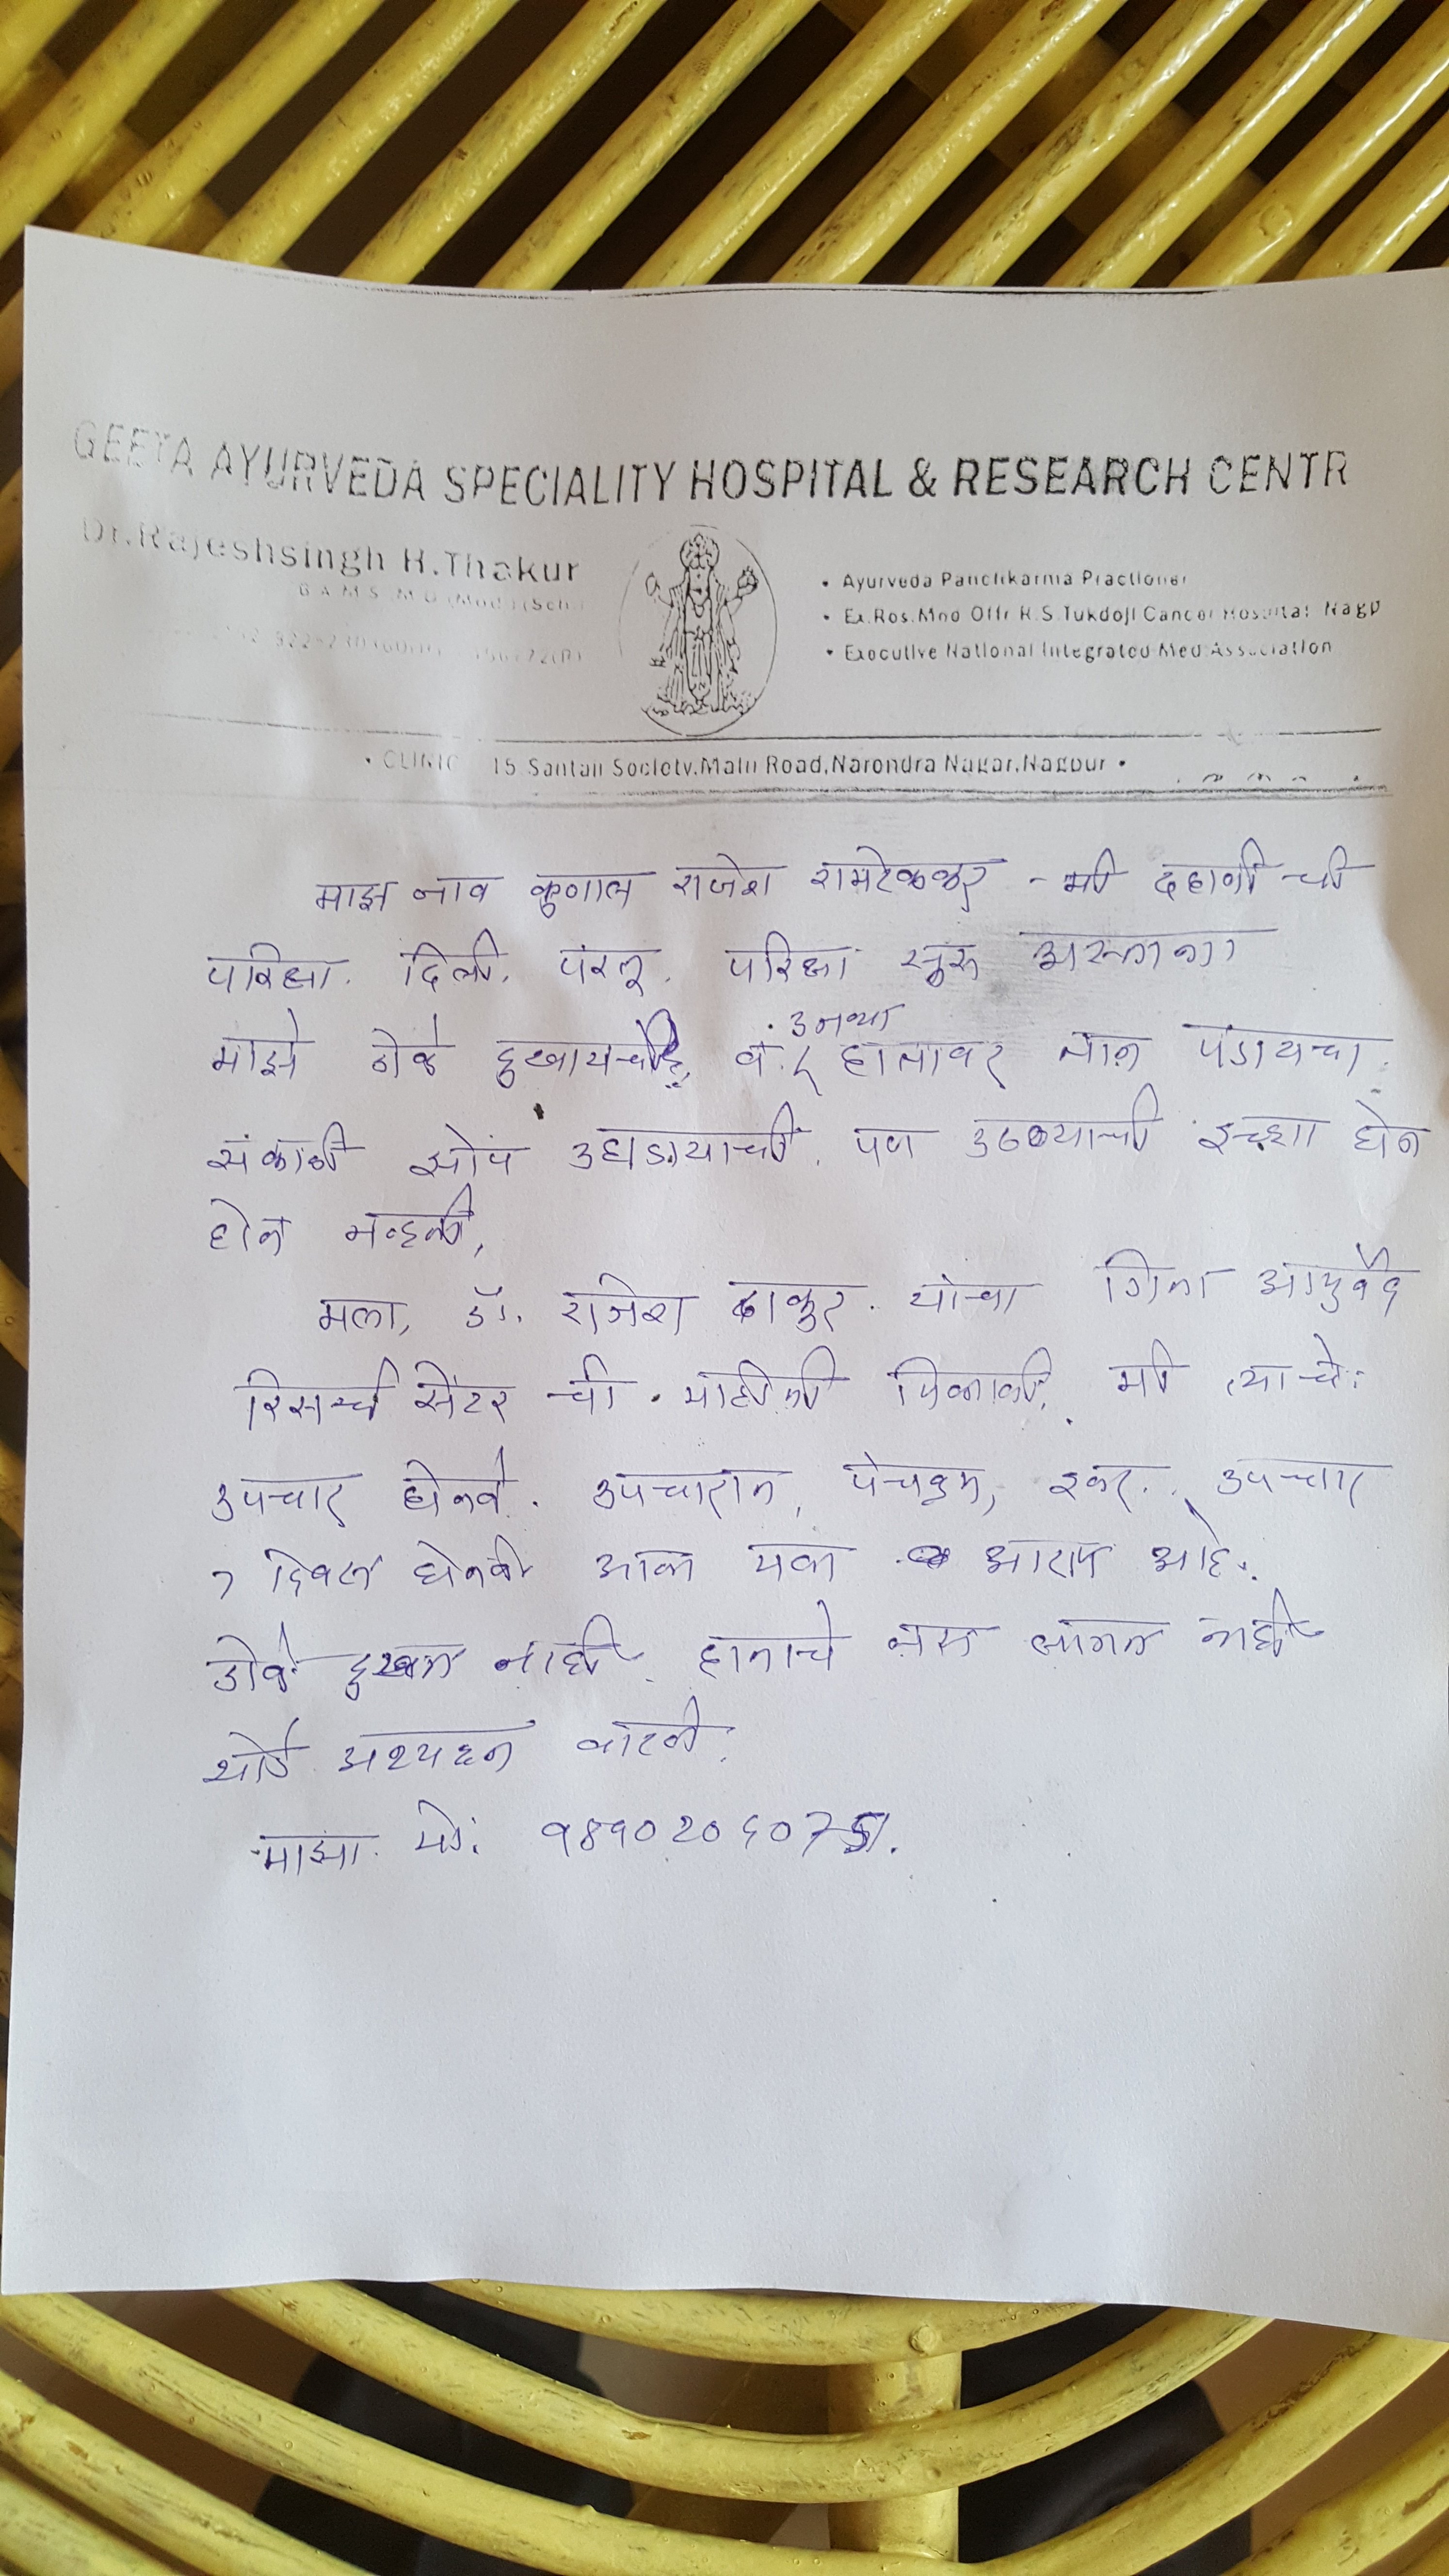 GEETA AYURVEDA SPECIALITY HOSPITAL & RESEARCH CENTR
Dr.Rajeshsingh H.Thakur
• Ayurveda Panchkarma Practioner
• Ex.Ros.Mno Offr R.S.Tukdoji Cancer Hospital Nagp
• Executive National Integrated Med Association
• CLINIC 15 Santaji Society,Main Road,Narendra Nagar,Nagpur •
माझ नाव कुणाल राजेश रामटेककर - मी दहावी ची
परिक्षा. दिली. परंतू. परिक्षा सुरू असताना
माझे डोके दुखायचे, व. उजव्या हातावर ताण पडायचा.
सकाळी झोप उघडायाची. पण उठण्याची इच्छा होत
होत नव्हती,
मला, डॉ. राजेश ठाकुर. यांचा गिता आयुर्वेद
रिसर्च सेंटर ची. माहीती मिळाली. मी त्याचे.
उपचार घेतले. उपचारात, पंचकर्म, उपचार
7 दिवस घेतली आता मला आराम आहे.
डोके दुखत नाही. हाताचे त्रास नाही
थोडे वाटते.
माझा. मो. 9890206075.